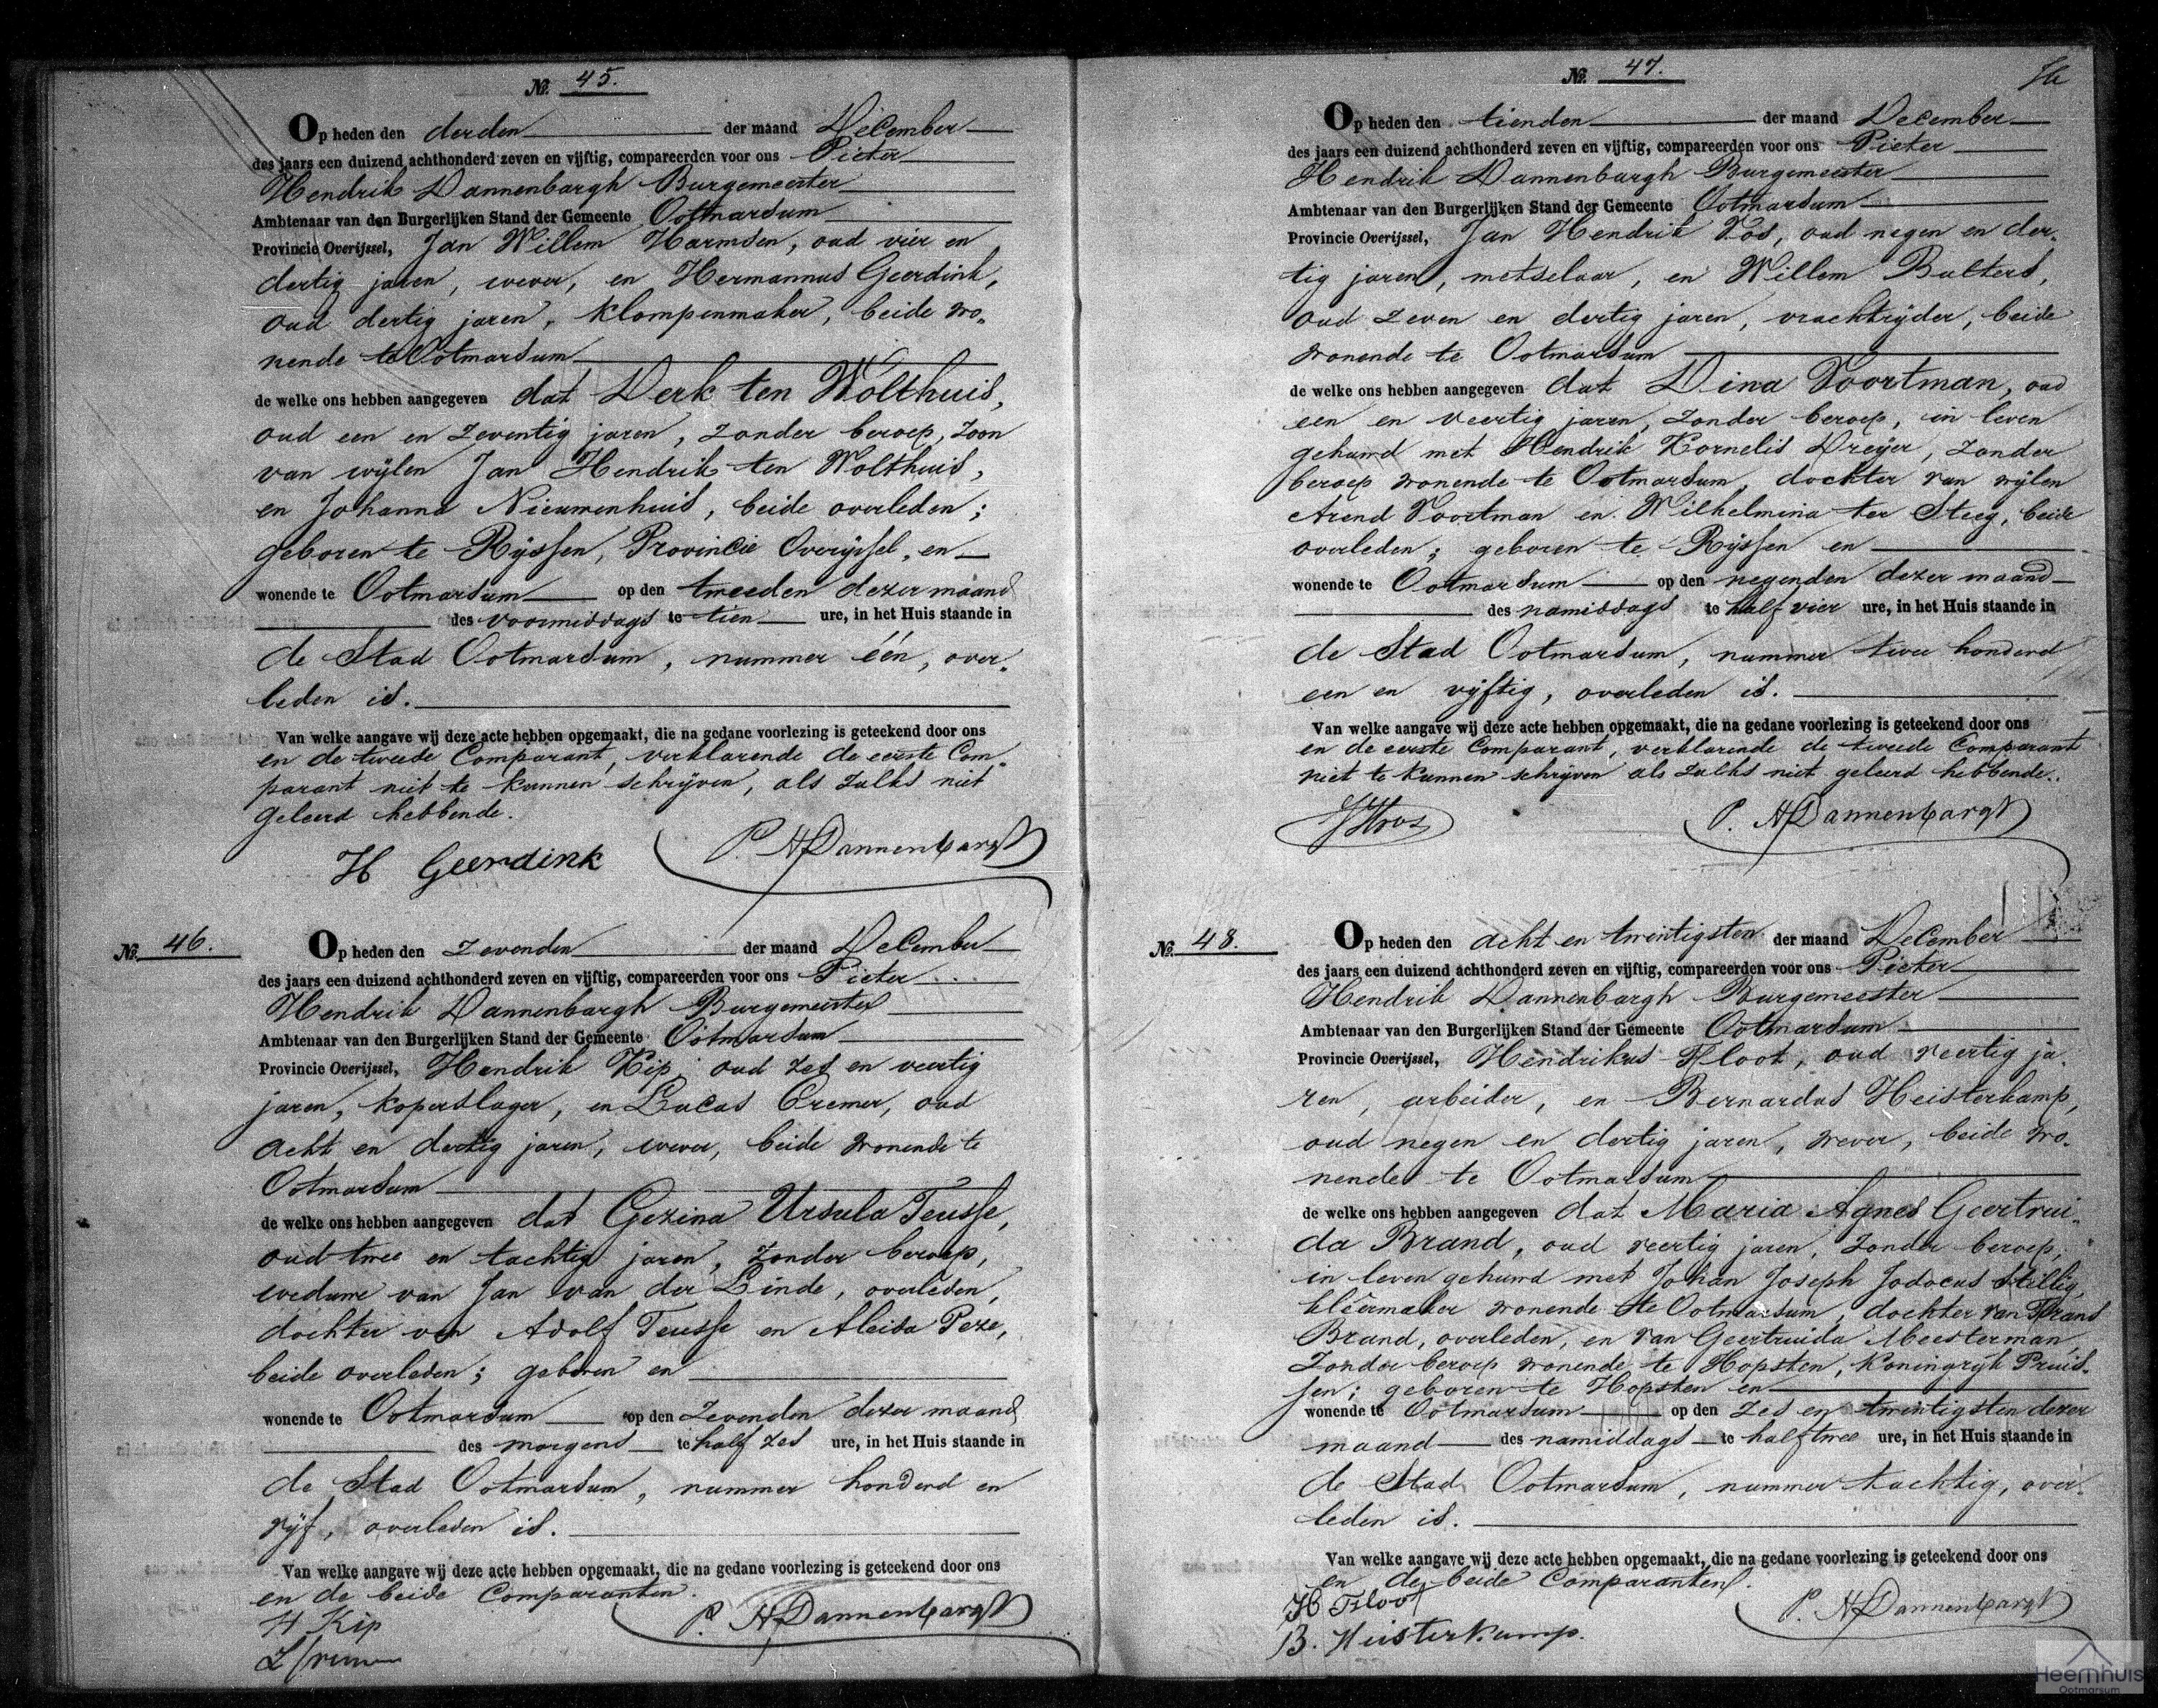 No. 45.
Op heden den derden der maand December
des jaars een duizend achthonderd zeven en vijftig, compareerden voor ons Pieter
Hendrik Dannenbargh Burgemeester
Ambtenaar van den Burgerlijken Stand der Gemeente Ootmarsum
Provincie Overijssel, Jan Willem Harmsen, oud vier en
dertig jaren, wever, en Hermannus Geerdink,
oud dertig jaren, klompenmaker, beide wo-
nende te Ootmarsum
de welke ons hebben aangegeven dat Derk ten Wolthuis,
oud een en zeventig jaren, zonder beroep, zoon
van wijlen Jan Hendrik ten Wolthuis,
en Johanna Nieuwenhuis, beide overleden;
geboren te Rijssen, Provincie Overijssel, en
wonende te Ootmarsum op den tweeden dezer maand
des voormiddags te tien ure, in het Huis staande in
de Stad Ootmarsum, nummer één, over-
leden is.
Van welke aangave wij deze acte hebben opgemaakt, die na gedane voorlezing is geteekend door ons
en de tweede Comparant, verklarende de eerste Com-
parant niet te kunnen schrijven, als zulks niet
geleerd hebbende.
H Geerdink P. H Dannenbargh
No. 46.
Op heden den zevenden der maand December
des jaars een duizend achthonderd zeven en vijftig, compareerden voor ons Pieter
Hendrik Dannenbargh Burgemeester
Ambtenaar van den Burgerlijken Stand der Gemeente Ootmarsum
Provincie Overijssel, Hendrik Kip, oud zes en veertig
jaren, koperslager, en Lucas Cremer, oud
acht en dertig jaren, wever, beide wonende te
Ootmarsum
de welke ons hebben aangegeven dat Gezina Ursula Teusse,
oud twee en tachtig jaren, zonder beroep,
weduwe van Jan van der Linde, overleden,
dochter van Adolf Teusse en Aleida Peze,
beide overleden; geboren en
wonende te Ootmarsum op den zevenden dezer maand
des morgens te half zes ure, in het Huis staande in
de Stad Ootmarsum, nummer honderd en
vijf, overleden is.
Van welke aangave wij deze acte hebben opgemaakt, die na gedane voorlezing is geteekend door ons
en de beide Comparanten.
H Kip P. H Dannenbargh
L Cremer
No. 47.
Op heden den tienden der maand December
des jaars een duizend achthonderd zeven en vijftig, compareerden voor ons Pieter
Hendrik Dannenbargh Burgemeester
Ambtenaar van den Burgerlijken Stand der Gemeente Ootmarsum
Provincie Overijssel, Jan Hendrik Vos, oud negen en der-
tig jaren, metselaar, en Willem Bulters,
oud zeven en dertig jaren, vrachtrijder, beide
wonende te Ootmarsum
de welke ons hebben aangegeven dat Dina Voortman, oud
een en veertig jaren, zonder beroep, in leven
gehuwd met Hendrik Kornelis Dreijer, zonder
beroep wonende te Ootmarsum, dochter van wijlen
Arend Voortman en Wilhelmina ter Steeg, beide
overleden; geboren te Rijssen en
wonende te Ootmarsum op den negenden dezer maand
des namiddags te half vier ure, in het Huis staande in
de Stad Ootmarsum, nummer twee honderd
een en vijftig, overleden is.
Van welke aangave wij deze acte hebben opgemaakt, die na gedane voorlezing is geteekend door ons
en de eerste Comparant, verklarende de tweede Comparant
niet te kunnen schrijven als zulks niet geleerd hebbende.
JHVos P. H Dannenbargh
No. 48.
Op heden den acht en twintigsten der maand December
des jaars een duizend achthonderd zeven en vijftig, compareerden voor ons Pieter
Hendrik Dannenbargh Burgemeester
Ambtenaar van den Burgerlijken Stand der Gemeente Ootmarsum
Provincie Overijssel, Hendrikus Floot, oud veertig ja-
ren, arbeider, en Bernardus Heisterkamp,
oud negen en dertig jaren, wever, beide wo-
nende te Ootmarsum
de welke ons hebben aangegeven dat Maria Agnes Geertrui-
da Brand, oud veertig jaren, zonder beroep,
in leven gehuwd met Johan Joseph Jodocus Stillig,
kleêrmaker wonende te Ootmarsum, dochter van Frans
Brand, overleden, en van Geertruida Meesterman,
zonder beroep wonende te Hopsten, Koningrijk Pruis-
sen; geboren te Hopsten en
wonende te Ootmarsum op den zes en twintigsten dezer
maand des namiddags te half twee ure, in het Huis staande in
de Stad Ootmarsum, nummer tachtig, over-
leden is.
Van welke aangave wij deze acte hebben opgemaakt, die na gedane voorlezing is geteekend door ons
en de beide Comparanten.
H Floot P. H Dannenbargh
B. Heisterkamp.
Heemhuis
Ootmarsum